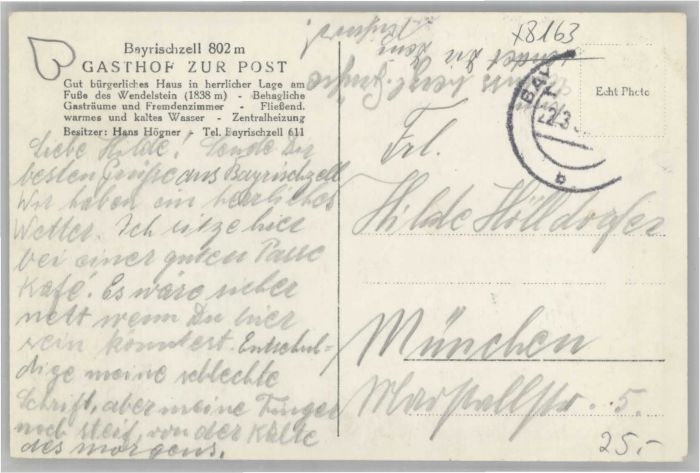 Bayrischzell 802 m
GASTHOF ZUR POST
Gut bürgerliches Haus in herrlicher Lage am
Fuße des Wendelstein (1838 m) - Behagliche
Gasträume und Fremdenzimmer - Fließend.
warmes und kaltes Wasser - Zentralheizung
Besitzer: Hans Högner - Tel. Bayrischzell 611
Liebe Hilde! Sende Dir
besten Grüße aus Bayrischzell
Wir haben ein herrliches
Wetter. Ich sitze hier
bei einer guten Tasse
Kafé. Es wäre sicher
nett wenn Du hier
sein könntest. Entschul-
dige meine schlechte
Schrift, aber meine Finger
noch steif, von der Kälte
des morgens.
sendet Dir
x8163
Echt Photo
22.3
b
Frl.
Hilde
München
5.
25.-